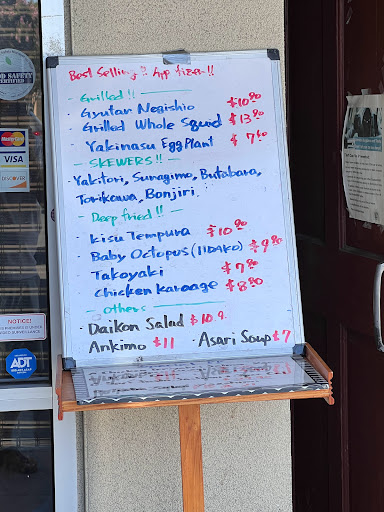 Best Selling!! App tizer!!
- Grilled!! -
· Gyutan Negishio $10.80
· Grilled Whole Squid $13.80
· Yakinasu EggPlant $7.60
- SKEWERS!! -
· Yakitori, Sunagimo, Butabara,
Torikawa, Bonjiri
- Deep fried!! -
· Kisu Tempura $10.80
· Baby Octopus (IIDAKO) $9.80
· Takoyaki $7.80
· Chicken Karaage $8.80
Others
· Daikon Salad $10.9
· Ankimo $11 · Asari Soup $7
FOOD SAFETY
CERTIFIED
MasterCard
VISA
DISCOVER
NOTICE!
ADT